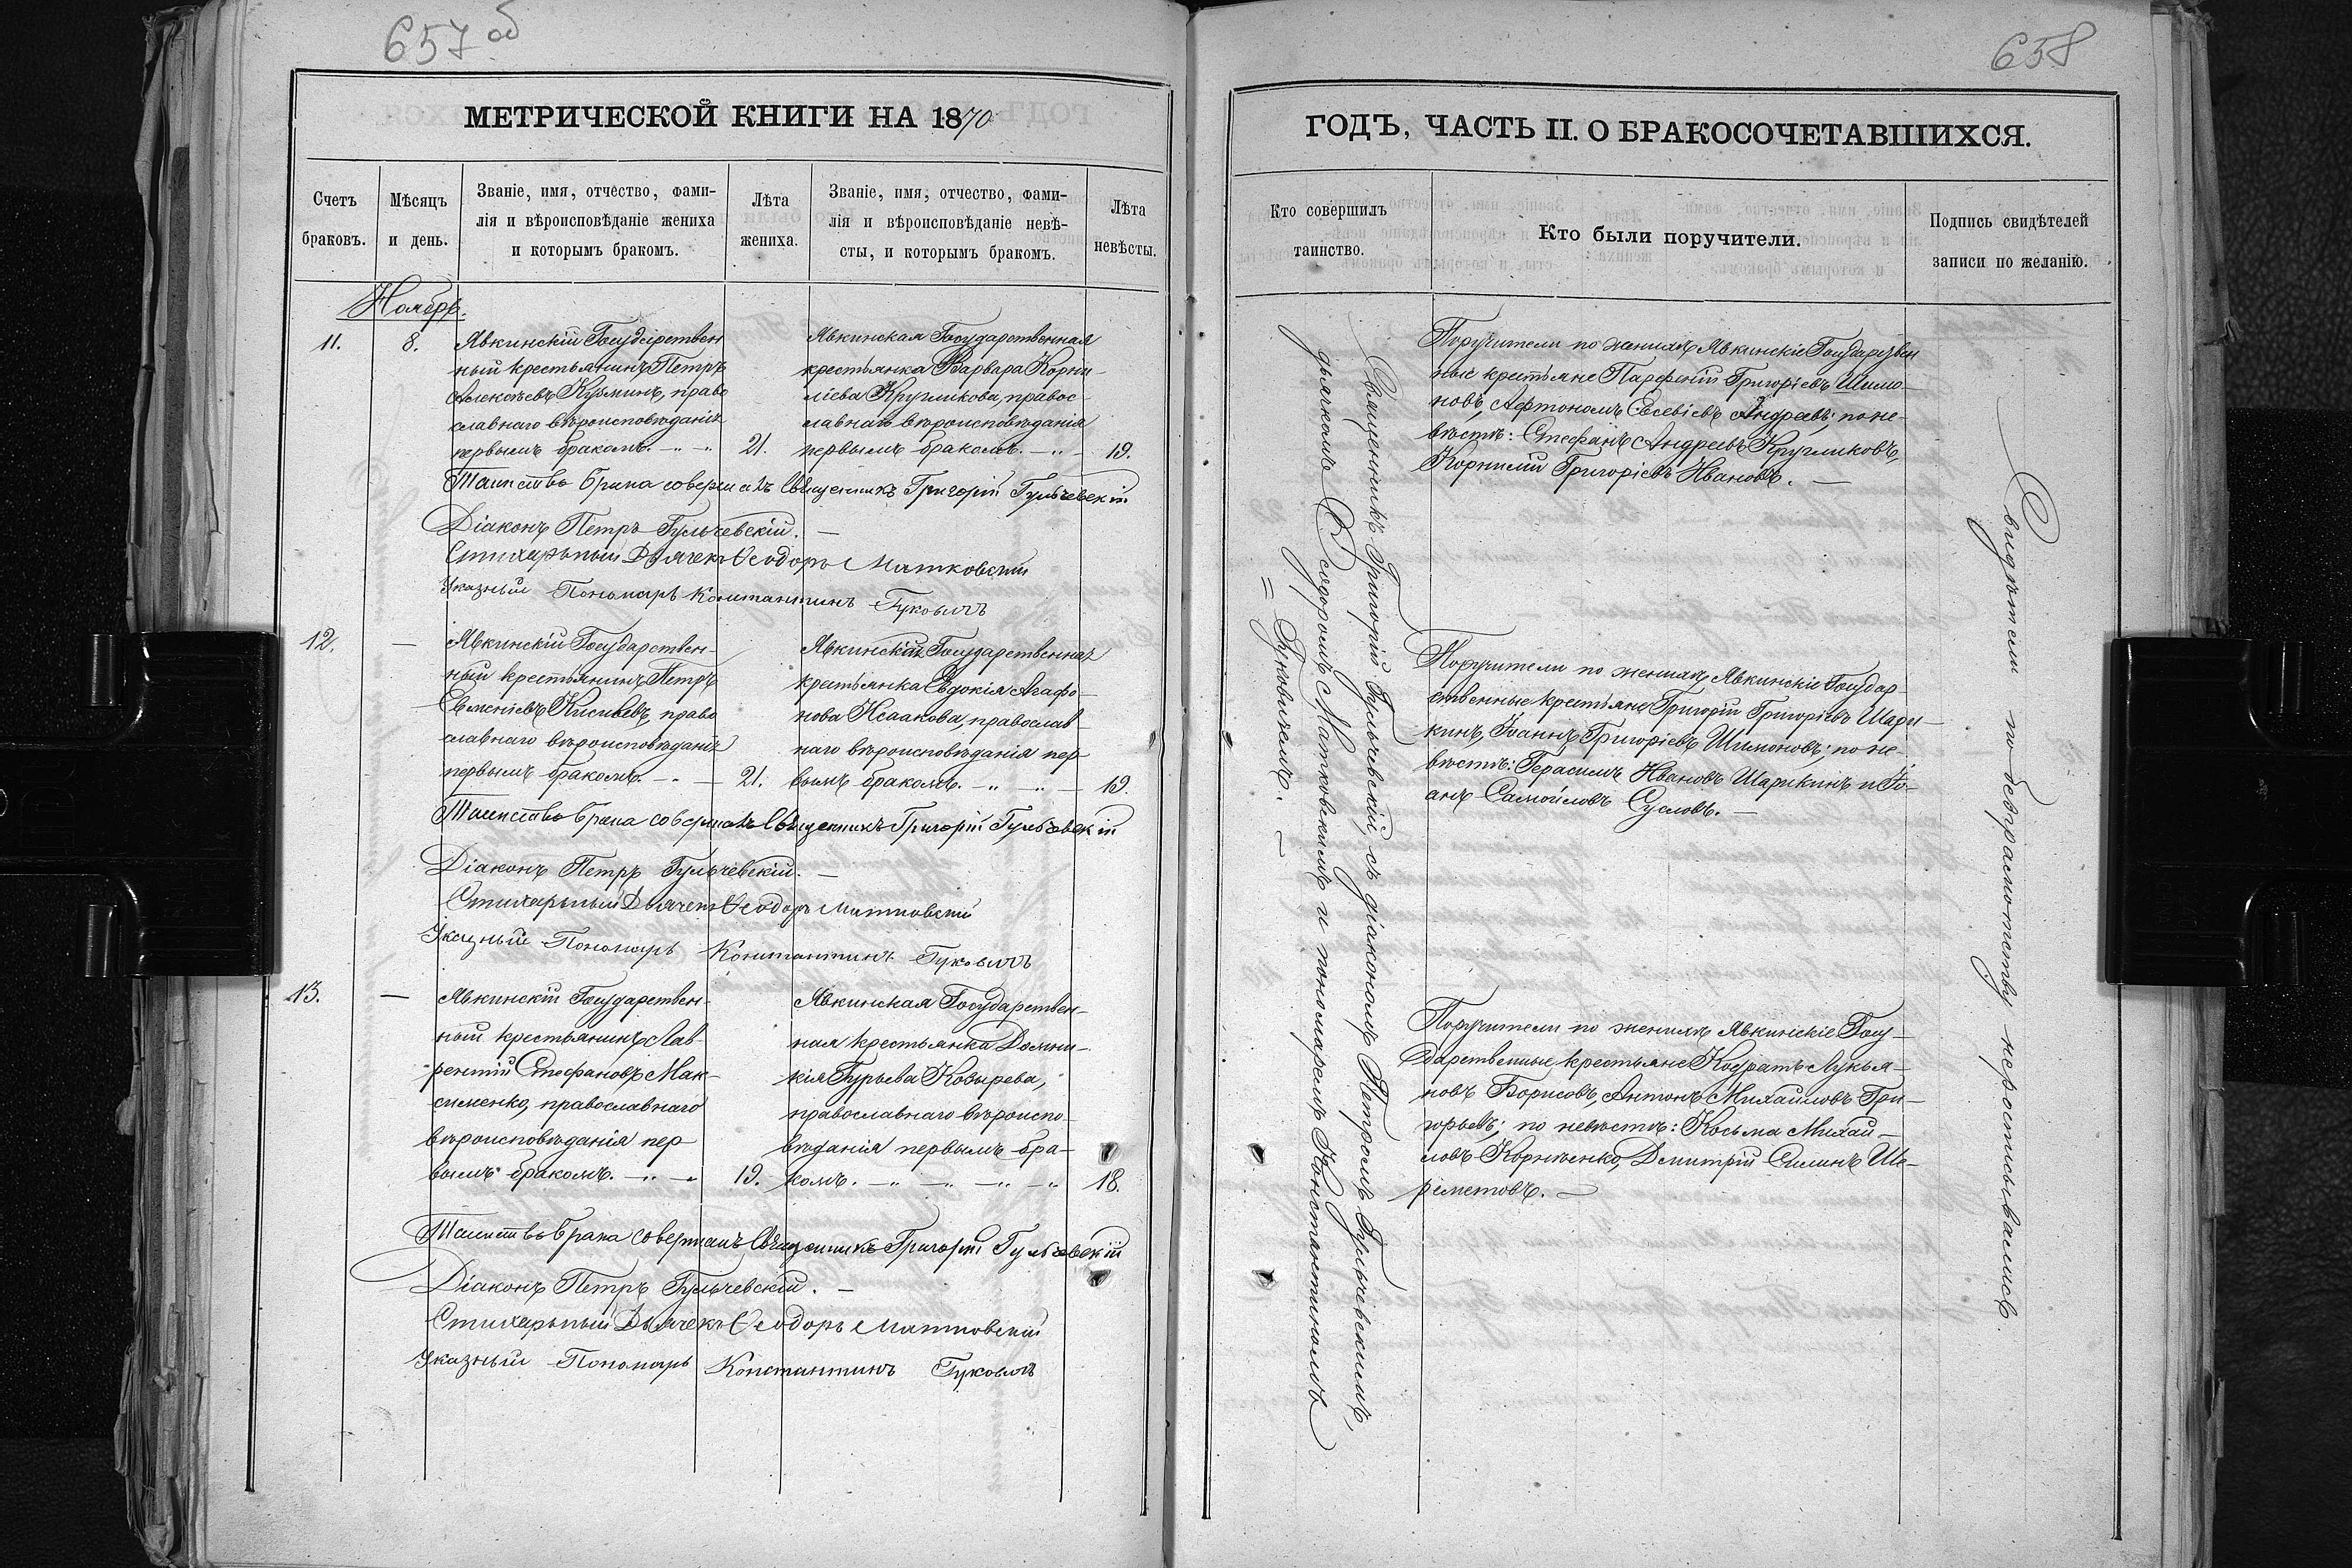 657 об
МЕТРИЧЕСКОЙ КНИГИ НА 1870
Счетъ
браковъ.
Мѣсяцъ
и день.
Званіе, имя, отчество, фами-
лія и вѣроисповѣданіе жениха
и которымъ бракомъ.
Лѣта
жениха.
Званіе, имя, отчество, фами-
лія и вѣроисповѣданіе невѣ-
сты, и которымъ бракомъ.
Лѣта
невѣсты.
Ноябрь.
11.
8.
Явкинскій Государствен
ный крестьянинъ Петръ
Алексѣевъ Кузминъ, право
славнаго вѣроисповѣданія
первымъ бракомъ.
21.
Явкинская Государственная
крестьянка Варвара Корни
ліева Кругликова, правос
лавнаго вѣроисповѣданія
первымъ бракомъ.
19.
Таинство брака совершалъ Священникъ Григорій Гульчевскій
Діаконъ Петръ Гульчевскій.
Стихарный Дьячекъ Ѳеодоръ Матковскій
Указный Пономарь Константинъ Гуковичъ
12.
—
Явкинскій Государствен-
ный крестьянинъ Петръ
Евменіевъ Киселевъ, право
славнаго вѣроисповѣданія
первымъ бракомъ.
21.
Явкинская Государственная
крестьянка Евдокія Агафо-
нова Исаакова, православ
наго вѣроисповѣданія пер
вымъ бракомъ.
19.
Таинство брака совершалъ Священникъ Григорій Гульчевскій
Діаконъ Петръ Гульчевскій.
Стихарный Дьячекъ Ѳеодоръ Матковскій
Указный Пономарь Константинъ Гуковичъ
13.
—
Явкинскій Государствен-
ный крестьянинъ Лав-
рентій Стефановъ Мак-
сименко, православнаго
вѣроисповѣданія пер
вымъ бракомъ.
19.
Явкинская Государствен-
ная крестьянка Домни-
кія Гурьева Козырева,
православнаго вѣроиспо-
вѣданія первымъ бра-
комъ.
18.
Таинство брака совершалъ Священникъ Григорій Гульчевскій
Діаконъ Петръ Гульчевскій.
Стихарный Дьячекъ Ѳеодоръ Матковскій
Указный Пономарь Константинъ Гуковичъ
658
ГОДЪ, ЧАСТЬ II. О БРАКОСОЧЕТАВШИХСЯ.
Кто совершилъ
таинство.
Кто были поручители.
Подпись свидѣтелей
записи по желанію.
Священникъ Григорій Гульчевскій, съ діакономъ Петромъ Гульчевскимъ,
дьячкомъ Ѳеодоромъ Матковскимъ и пономаремъ Константиномъ
= Гуковичемъ. —
Поручители по женихѣ Явкинскіе Государствен
ные крестьяне Парфеній Григорьевъ Шимо-
новъ, Афтономъ Евсевіевъ Андреевъ; по не-
вѣстѣ: Стефанъ Андреевъ Кругликовъ,
Корнилій Григоріевъ Ивановъ. —
Поручители по женихѣ Явкинскіе Государ-
ственные крестьяне Григорій Григоріевъ Шари-
кинъ, Іоаннъ Григоріевъ Шимоновъ; по не-
вѣстѣ: Герасимъ Ивановъ Шарикинъ и Іо-
анъ Самойловъ Сусловъ. —
Поручители по женихѣ Явкинскіе Госу-
дарственные крестьяне Кодратъ Лукья-
новъ Борисовъ, Антонъ Михайловъ Гри-
горьевъ; по невѣстѣ: Косьма Михай-
ловъ Корнѣенко, Димитрій Силинъ Ше-
реметовъ. —
Свидѣтели по безграмотству нероспісываемсь.